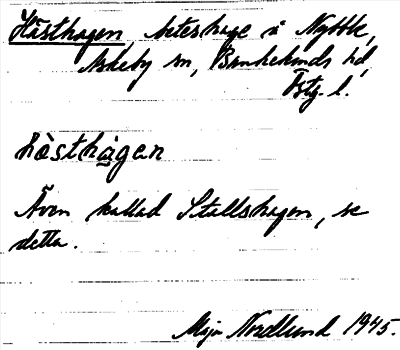 Hästhagen beteshage i Nybble,
Askeby sn, Bankekinds hd,
Östg. l.
hàsthàgan
Även kallad Stallshagen, se
detta.
Maja Nordlund 1945.